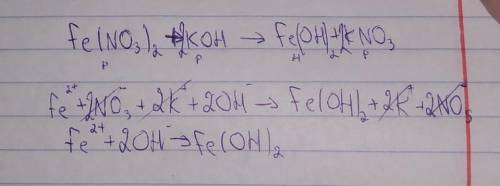 Fe(NO₃)₂ + 2KOH → Fe(OH)₂ + 2KNO₃
р р н р
Fe²⁺ + 2NO₃⁻ + 2K⁺ + 2OH⁻ → Fe(OH)₂ + 2K⁺ + 2NO₃⁻
Fe²⁺ + 2OH⁻ → Fe(OH)₂